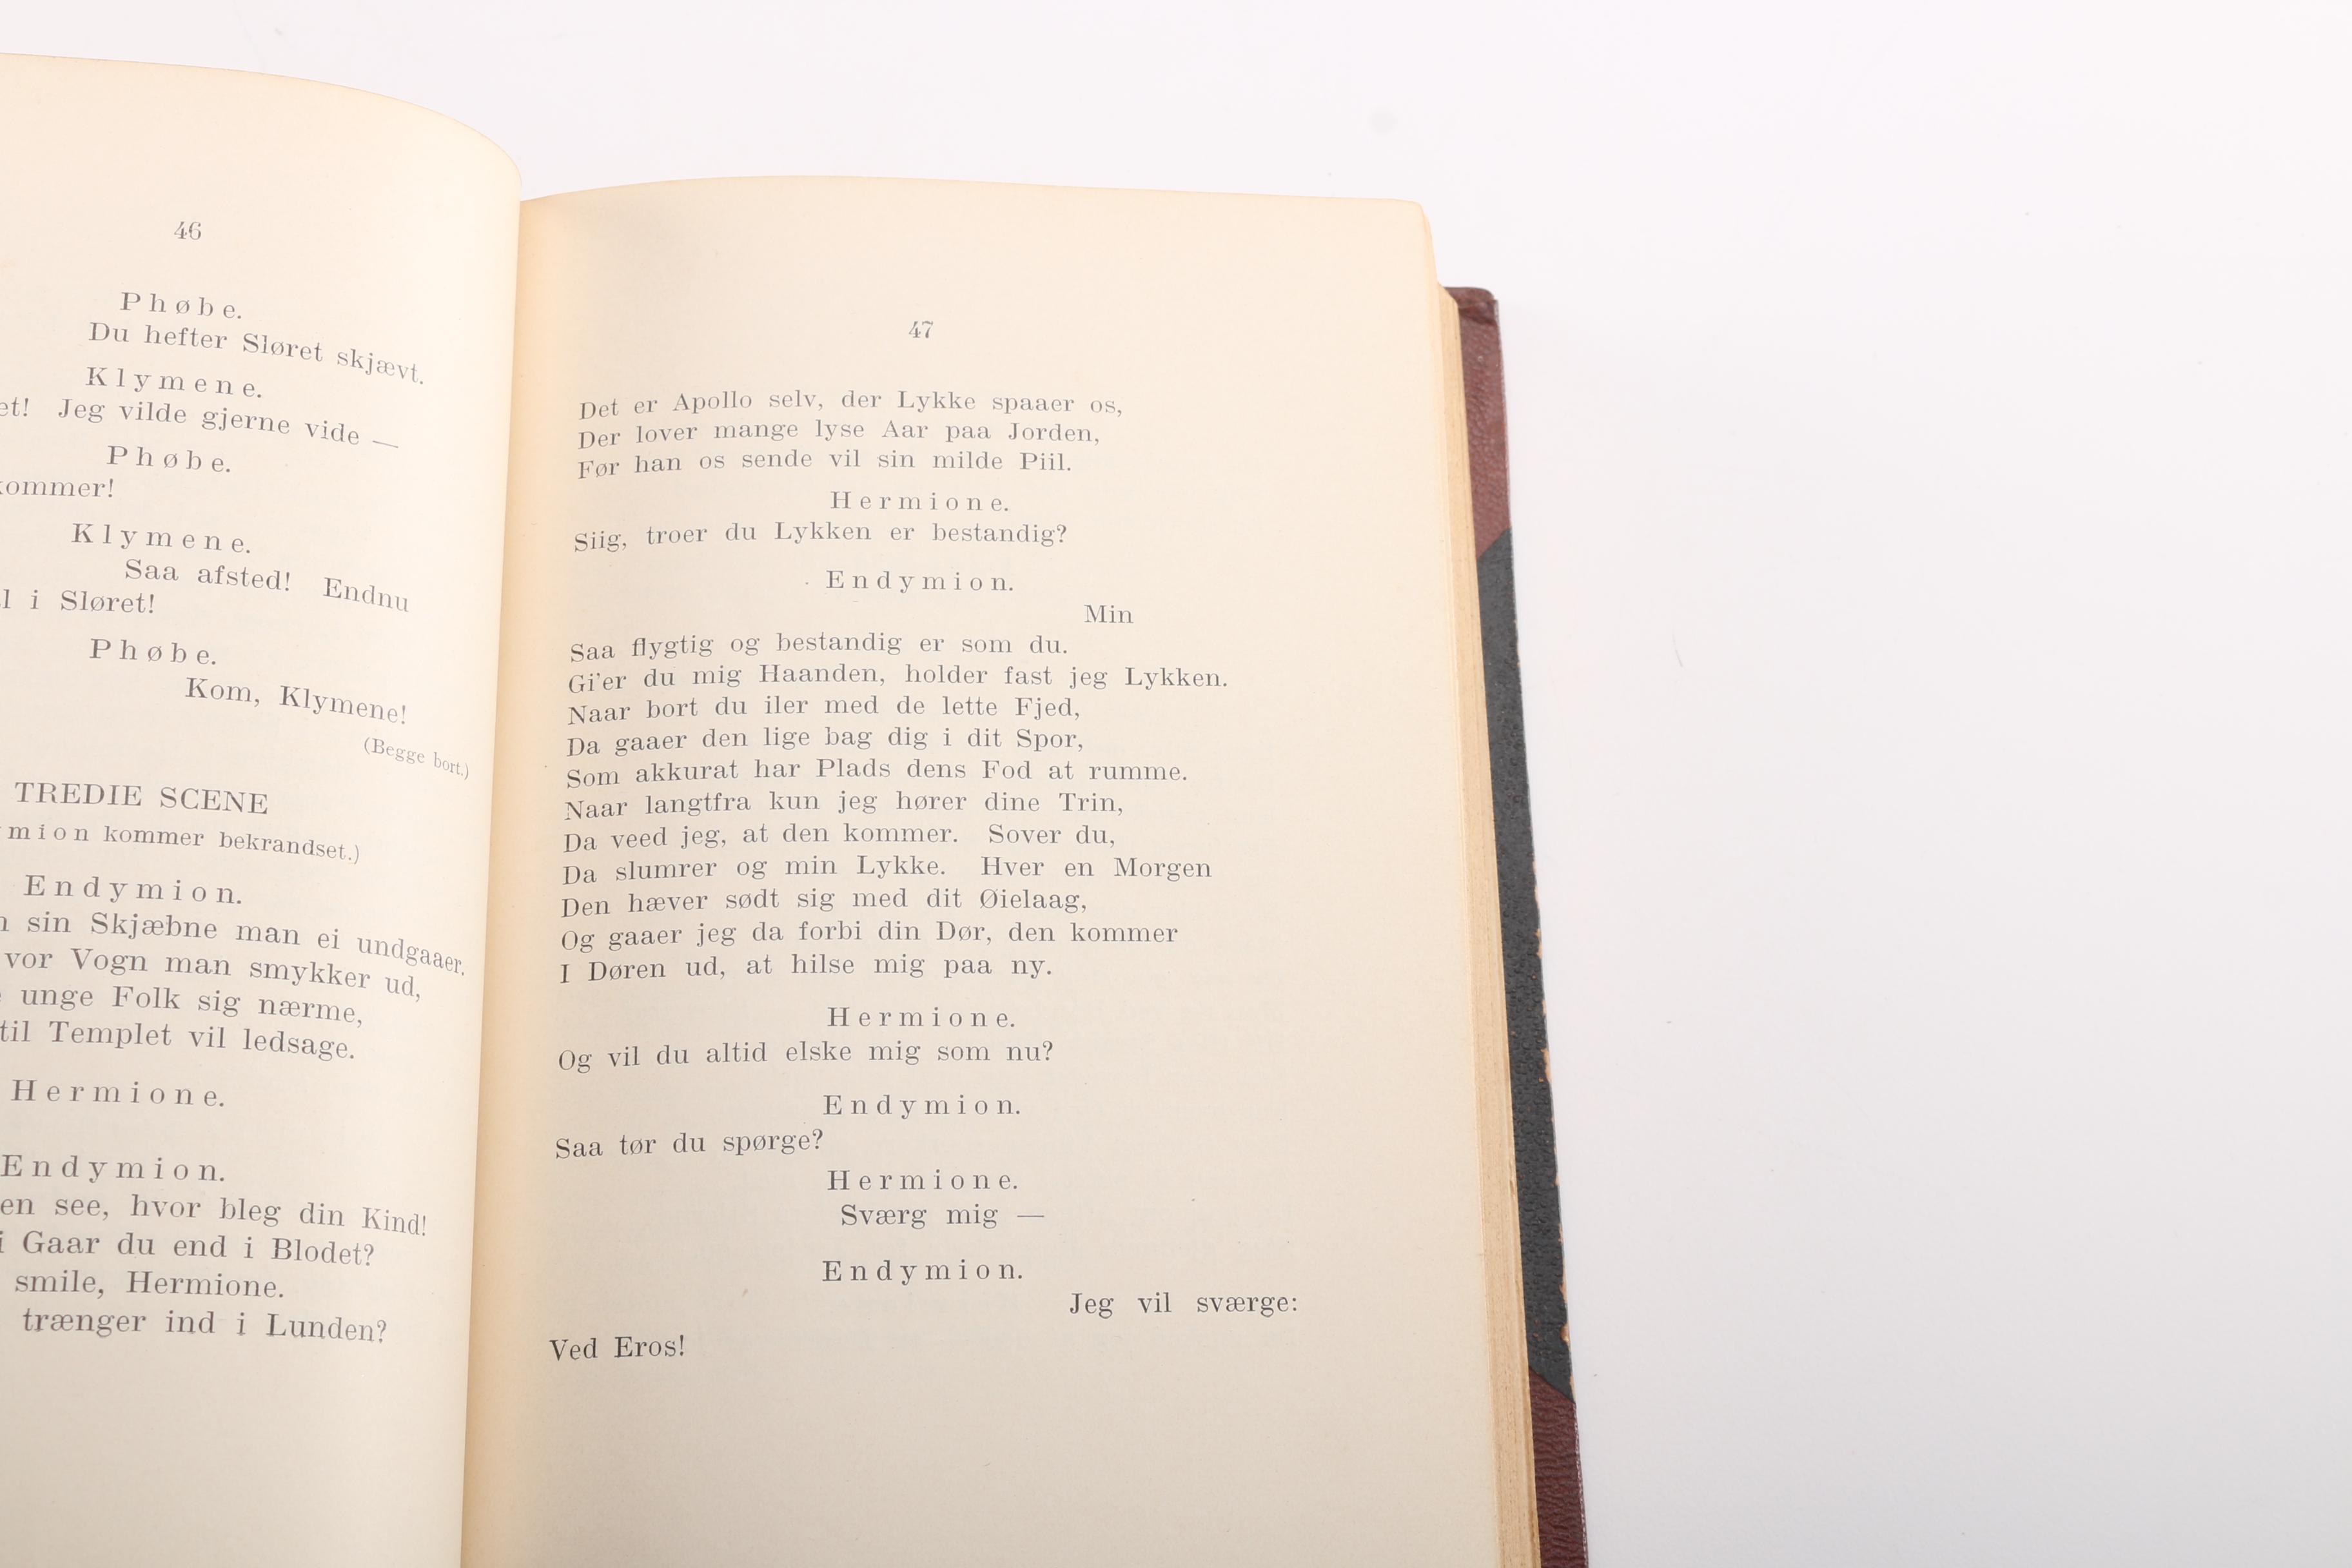 46
Phøbe.
Du hefter Sløret skjævt.
Klymene.
Jeg vilde gjerne vide —
Phøbe.
Klymene.
Saa afsted! Endnu
i Sløret!
Phøbe.
Kom, Klymene!
(Begge bort.)
TREDIE SCENE
kommer bekrandset.)
Endymion.
sin Skjæbne man ei undgaaer.
vor Vogn man smykker ud,
unge Folk sig nærme,
til Templet vil ledsage.
Hermione.
Endymion.
see, hvor bleg din Kind!
Gaar du end i Blodet?
smile, Hermione.
trænger ind i Lunden?
47
Det er Apollo selv, der Lykke spaaer os,
Der lover mange lyse Aar paa Jorden,
Før han os sende vil sin milde Piil.
Hermione.
Siig, troer du Lykken er bestandig?
Endymion.
Min
Saa flygtig og bestandig er som du.
Gi'er du mig Haanden, holder fast jeg Lykken.
Naar bort du iler med de lette Fjed,
Da gaaer den lige bag dig i dit Spor,
Som akkurat har Plads dens Fod at rumme.
Naar langtfra kun jeg hører dine Trin,
Da veed jeg, at den kommer. Sover du,
Da slumrer og min Lykke. Hver en Morgen
Den hæver sødt sig med dit Øielaag,
Og gaaer jeg da forbi din Dør, den kommer
I Døren ud, at hilse mig paa ny.
Hermione.
Og vil du altid elske mig som nu?
Endymion.
Saa tør du spørge?
Hermione.
Sværg mig —
Endymion.
Jeg vil sværge:
Ved Eros!